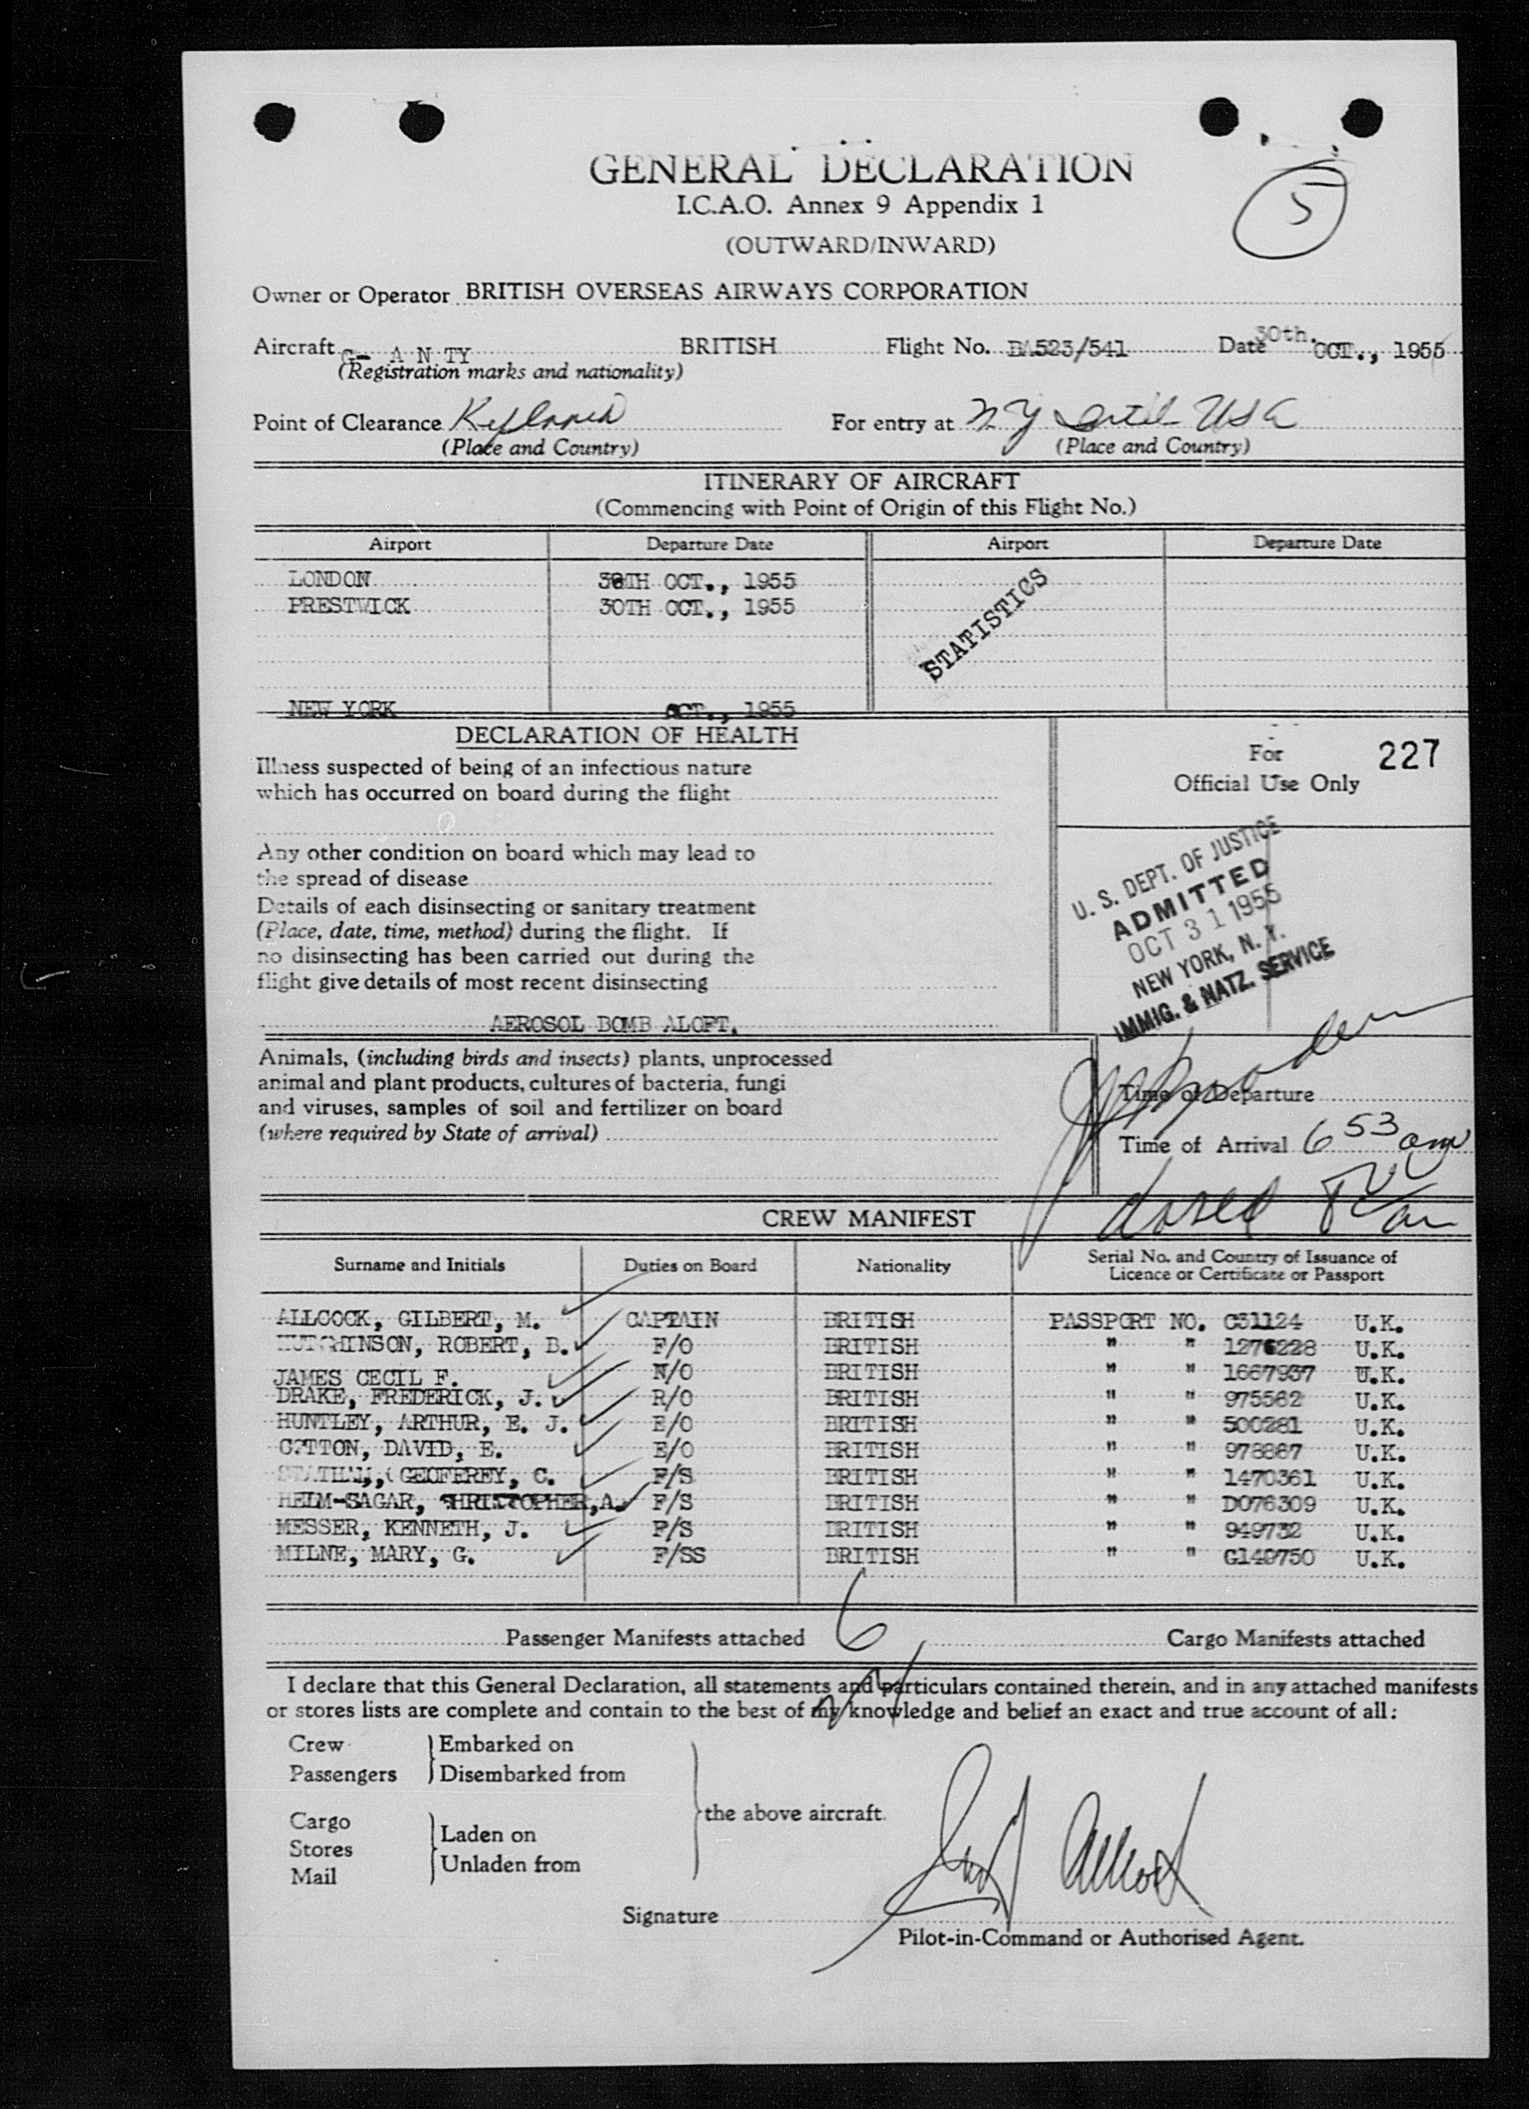 GENERAL DECLARATION
I.C.A.O. Annex 9 Appendix 1
5
(OUTWARD/INWARD)
Owner or Operator BRITISH OVERSEAS AIRWAYS CORPORATION
Aircraft G- A N TY BRITISH Flight No. BA523/541 Date 30th. OCT., 1955
(Registration marks and nationality)
Point of Clearance For entry at NY USA
(Place and Country) (Place and Country)
ITINERARY OF AIRCRAFT
(Commencing with Point of Origin of this Flight No.)
Airport Departure Date Airport Departure Date
LONDON 30TH OCT., 1955
PRESTWICK 30TH OCT., 1955
STATISTICS
NEW YORK OCT., 1955
DECLARATION OF HEALTH
Illness suspected of being of an infectious nature
which has occurred on board during the flight
Any other condition on board which may lead to
the spread of disease
Details of each disinsecting or sanitary treatment
(Place, date, time, method) during the flight. If
no disinsecting has been carried out during the
flight give details of most recent disinsecting
AEROSOL BOMB ALOFT.
For 227
Official Use Only
U. S. DEPT. OF JUSTICE
ADMITTED
OCT 31 1955
NEW YORK, N. Y.
IMMIG. & NATZ. SERVICE
Animals, (including birds and insects) plants, unprocessed
animal and plant products, cultures of bacteria, fungi
and viruses, samples of soil and fertilizer on board
(where required by State of arrival)
Time of Departure
Time of Arrival 6 53 am
CREW MANIFEST
Surname and Initials Duties on Board Nationality Serial No. and Country of Issuance of
Licence or Certificate or Passport
ALLCOCK, GILBERT, M. CAPTAIN BRITISH PASSPORT NO. C31124 U.K.
HUTCHINSON, ROBERT, B. F/O BRITISH " " 1276228 U.K.
JAMES CECIL F. N/O BRITISH " " 1667937 U.K.
DRAKE, FREDERICK, J. R/O BRITISH " " 975562 U.K.
HUNTLEY, ARTHUR, E. J. E/O BRITISH " " 500281 U.K.
COTTON, DAVID, E. E/O BRITISH " " 978867 U.K.
STATHAM, GEOFEREY, C. F/S BRITISH " " 1470361 U.K.
HELM-SAGAR, CHRISTOPHER, A. F/S BRITISH " " D076309 U.K.
MESSER, KENNETH, J. F/S BRITISH " " 949732 U.K.
MILNE, MARY, G. F/SS BRITISH " " G149750 U.K.
Passenger Manifests attached 6 Cargo Manifests attached
I declare that this General Declaration, all statements and particulars contained therein, and in any attached manifests
or stores lists are complete and contain to the best of my knowledge and belief an exact and true account of all:
Crew Embarked on
Passengers Disembarked from
the above aircraft.
Cargo
Stores Laden on
Mail Unladen from
Signature Allcock
Pilot-in-Command or Authorised Agent.